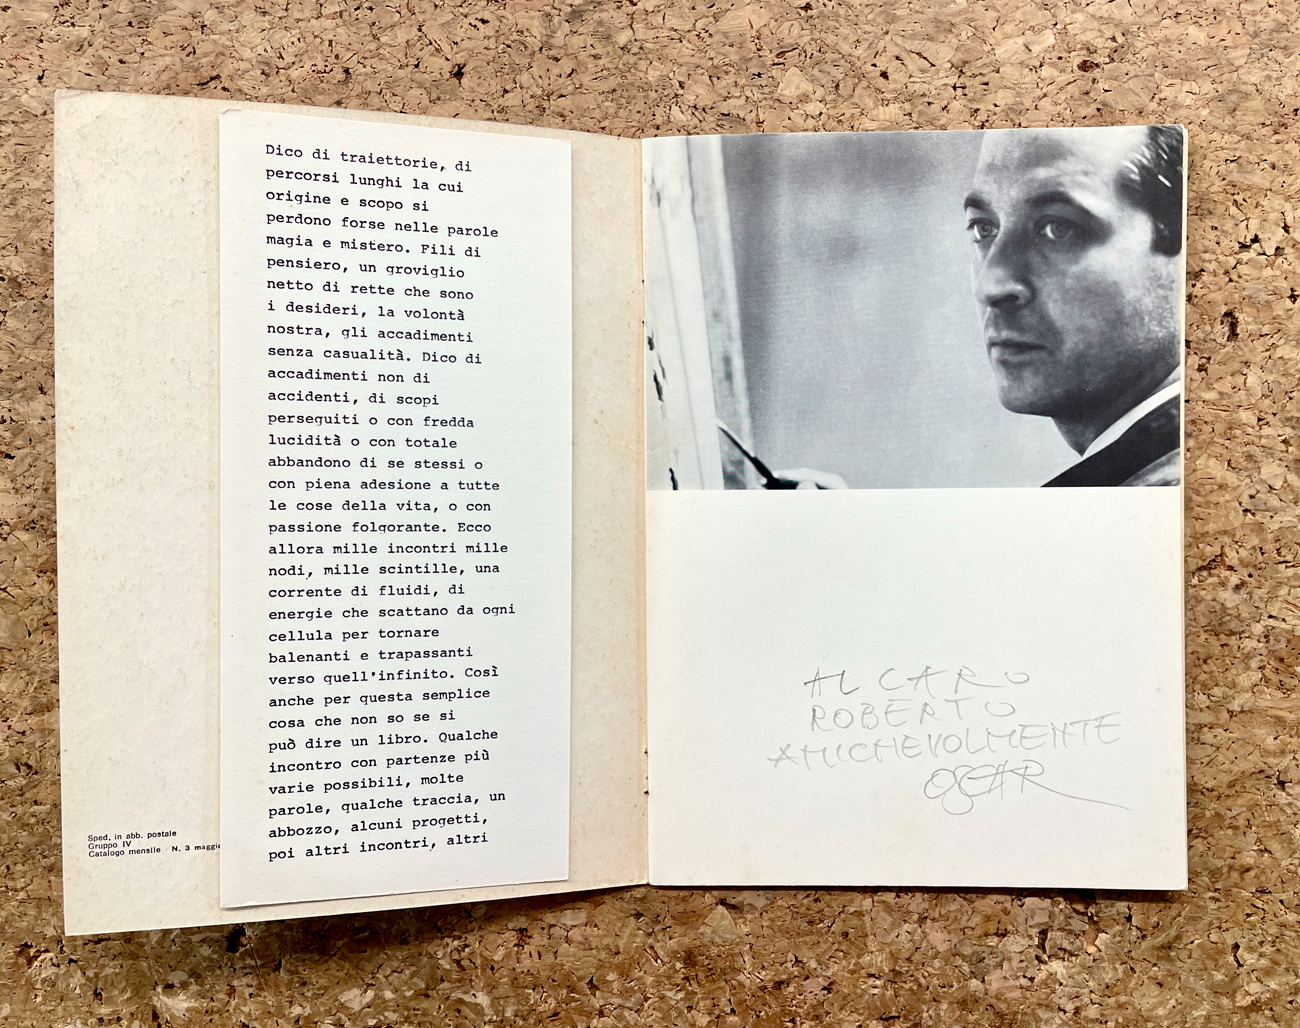 Dico di traiettorie, di
percorsi lunghi la cui
origine e scopo si
perdono forse nelle parole
magia e mistero. Fili di
pensiero, un groviglio
netto di rette che sono
i desideri, la volontà
nostra, gli accadimenti
senza casualità. Dico di
accadimenti non di
accidenti, di scopi
perseguiti o con fredda
lucidità o con totale
abbandono di se stessi o
con piena adesione a tutte
le cose della vita, o con
passione folgorante. Ecco
allora mille incontri mille
nodi, mille scintille, una
corrente di fluidi, di
energie che scattano da ogni
cellula per tornare
balenanti e trapassanti
verso quell'infinito. Così
anche per questa semplice
cosa che non so se si
può dire un libro. Qualche
incontro con partenze più
varie possibili, molte
parole, qualche traccia, un
abbozzo, alcuni progetti,
poi altri incontri, altri
Sped. in abb. postale
Gruppo IV
Catalogo mensile N. 3 maggio
AL CARO
ROBERTO
AMICHEVOLMENTE
OSCAR